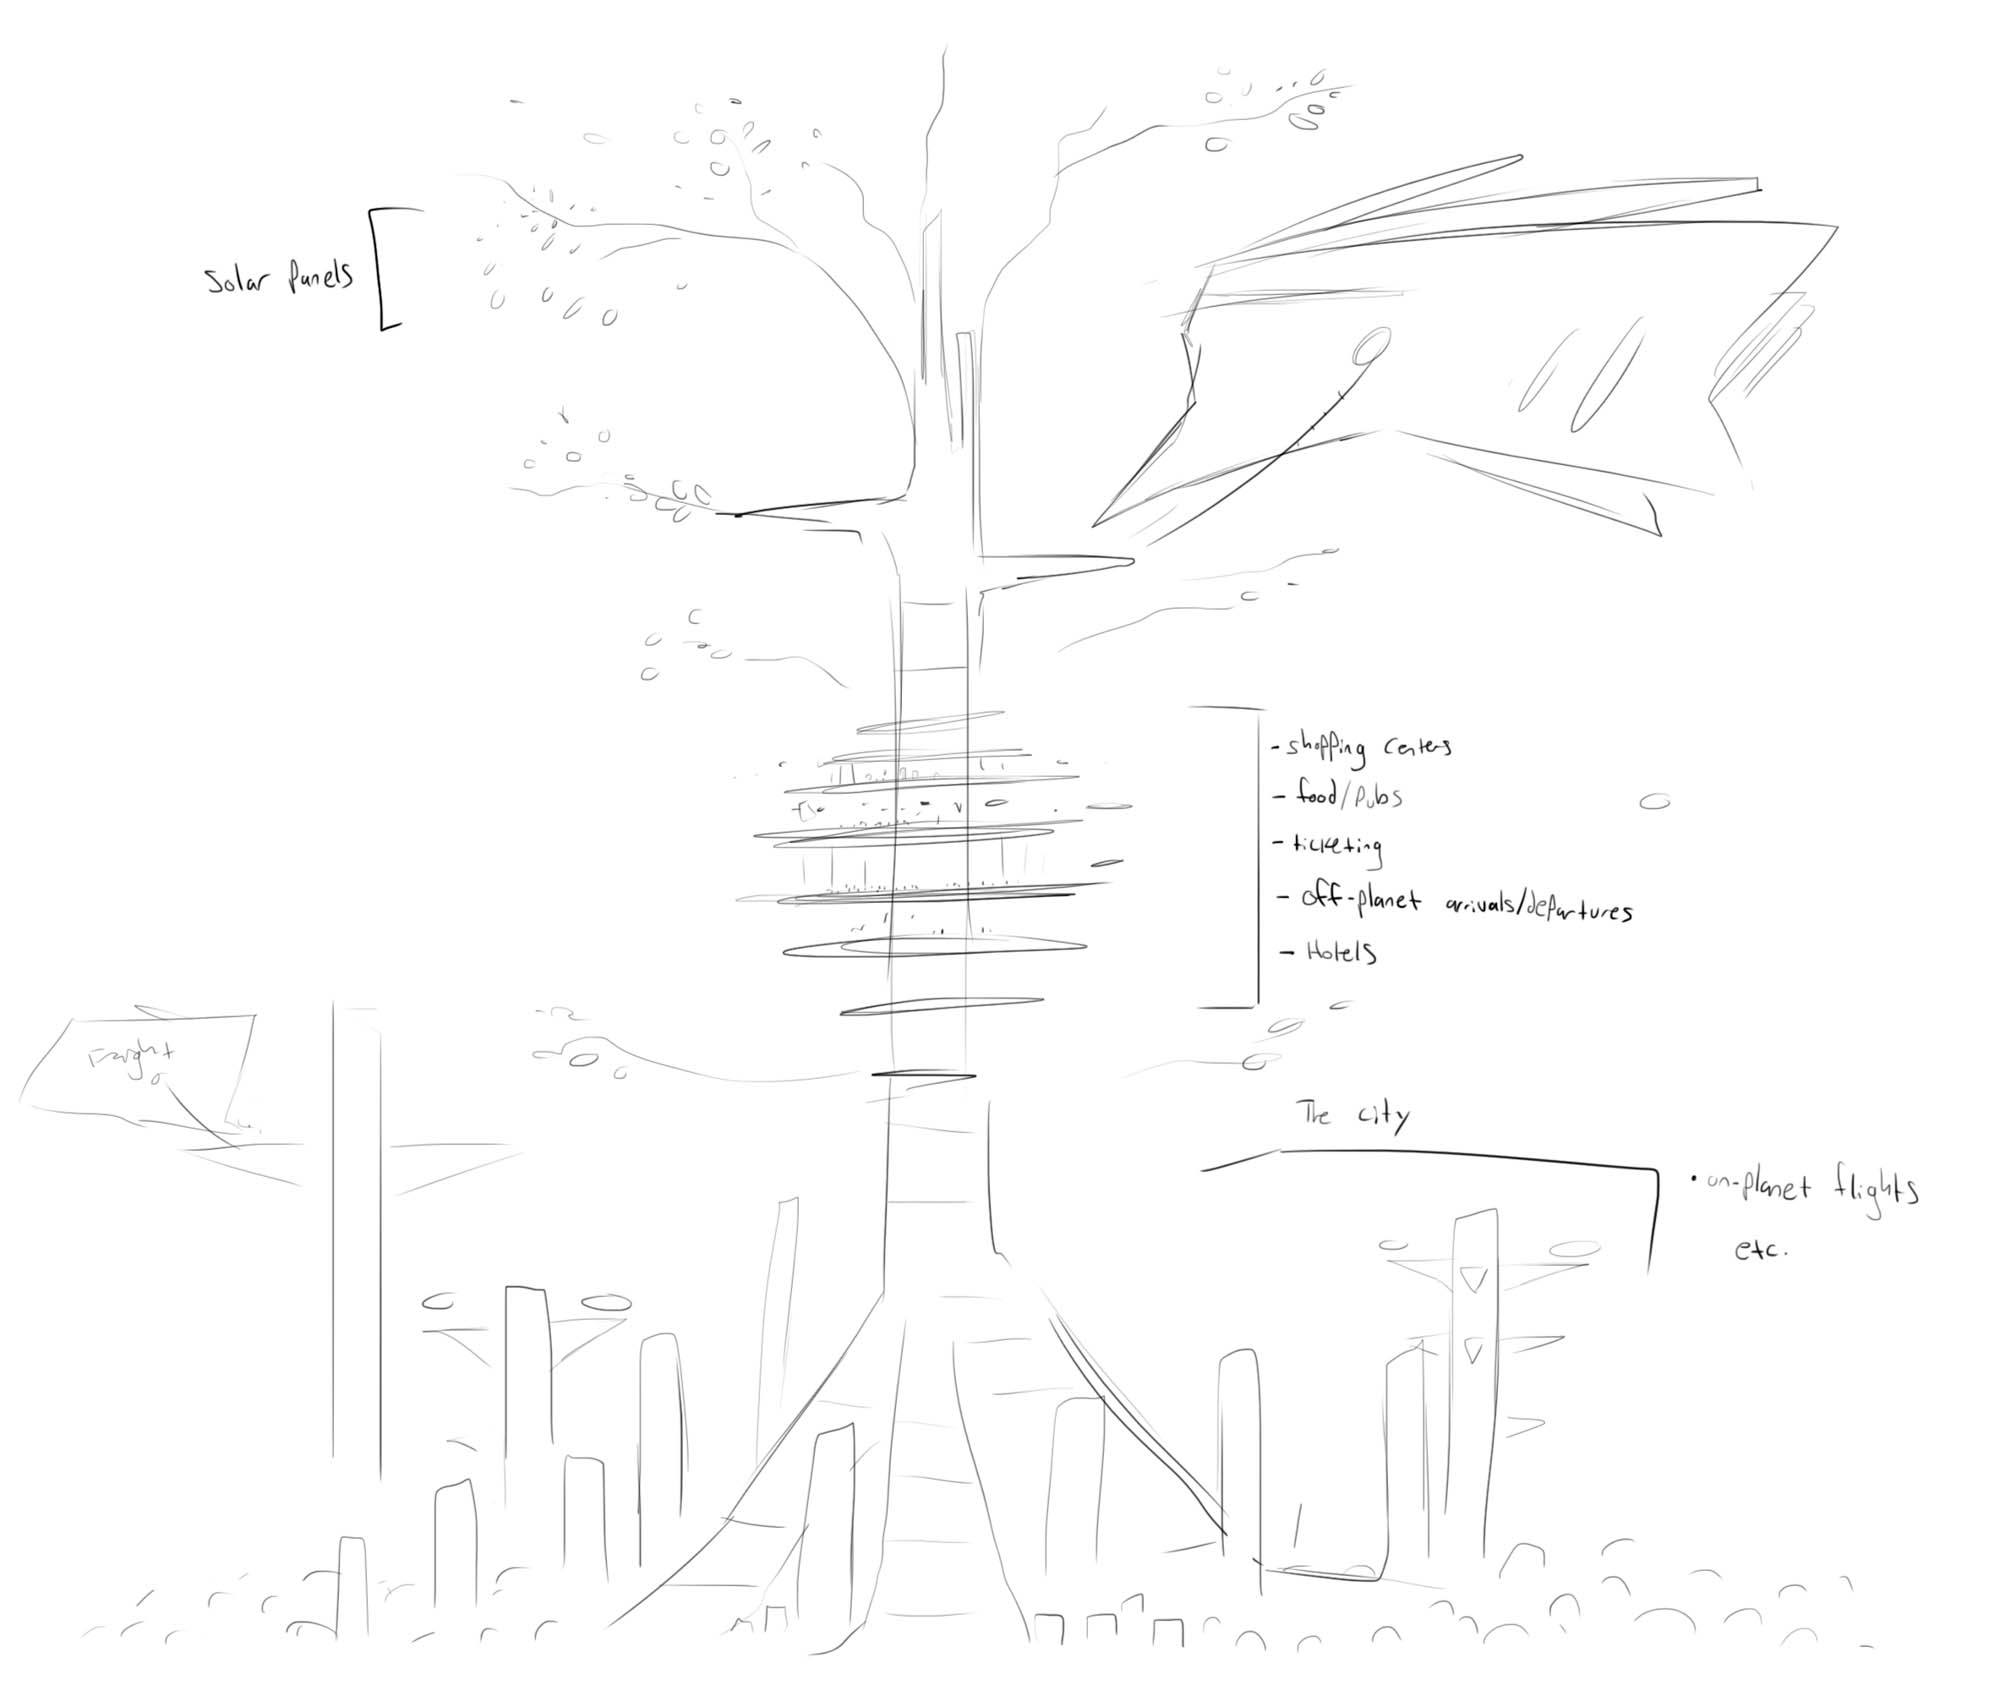 Solar Panels
- shopping centers
- food/pubs
- ticketing
- off-planet arrivals/departures
- Hotels
Freight
The city
• on-planet flights
etc.